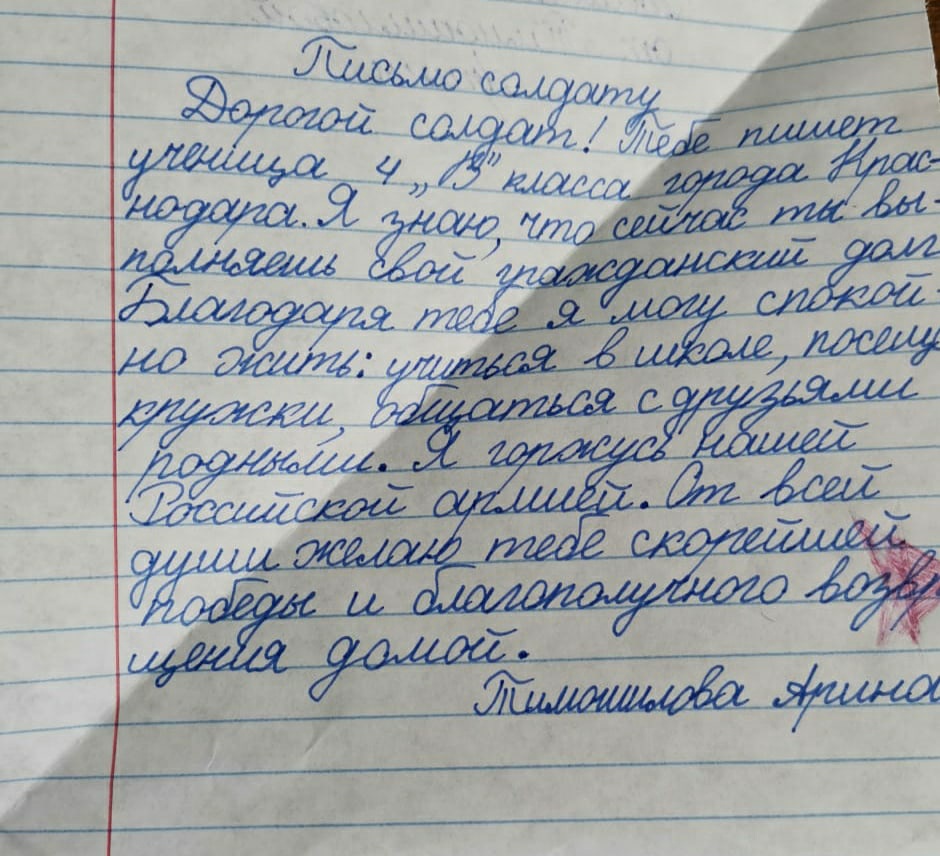 Письмо солдату
Дорогой солдат! Тебе пишет
ученица 4 „В" класса города Крас-
нодара. Я знаю, что сейчас ты вы-
полняешь свой гражданский долг
Благодаря тебе я могу спокой-
но жить: учиться в школе, посещ
кружки, общаться с друзьями
родными. Я горжусь нашей
Российской армией. От всей
души желаю тебе скорейшей
победы и благополучного возвр
щения домой.
Тимошилова Арина